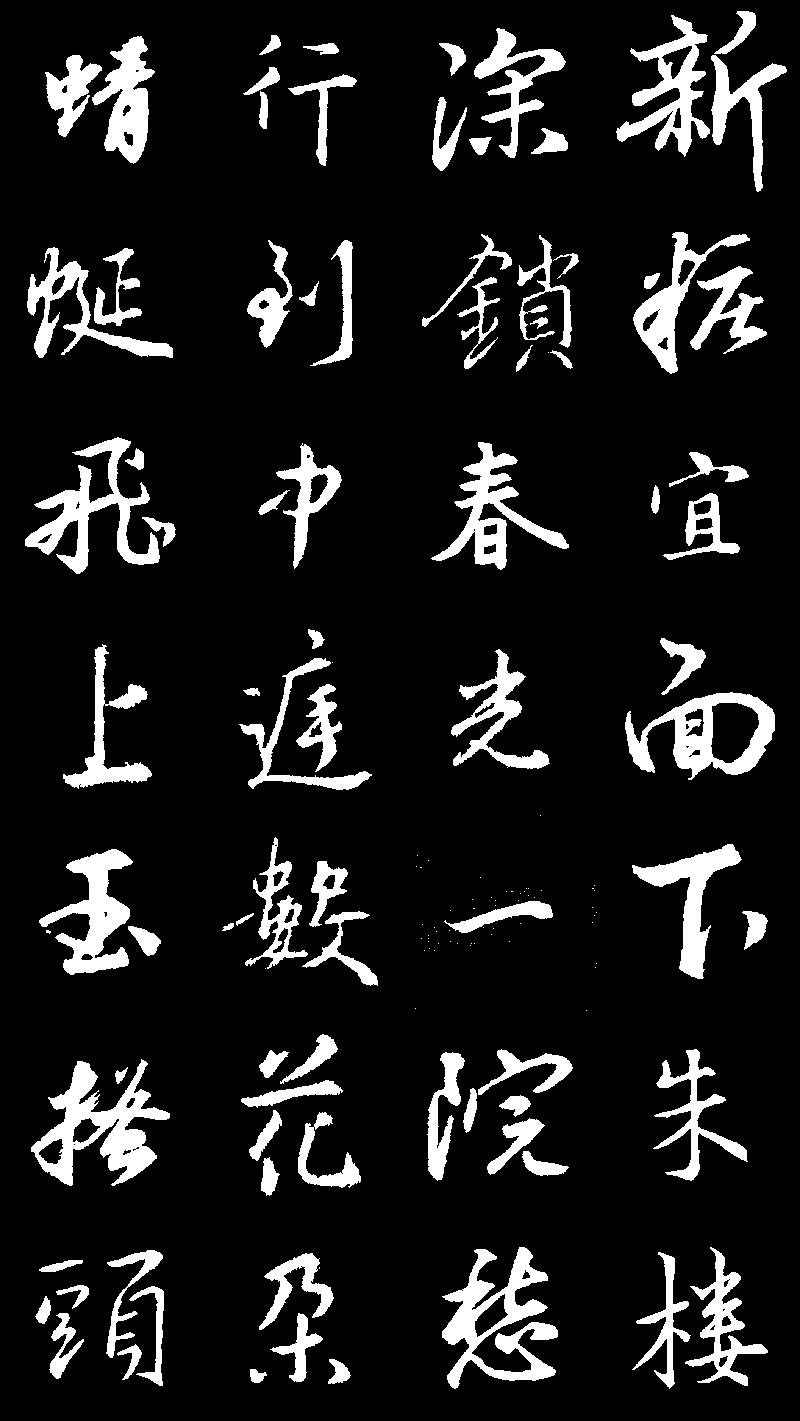 新粧宜面下朱楼
深鎖春光一院愁
行到中庭數花朵
蜻蜓飛上玉搔頭